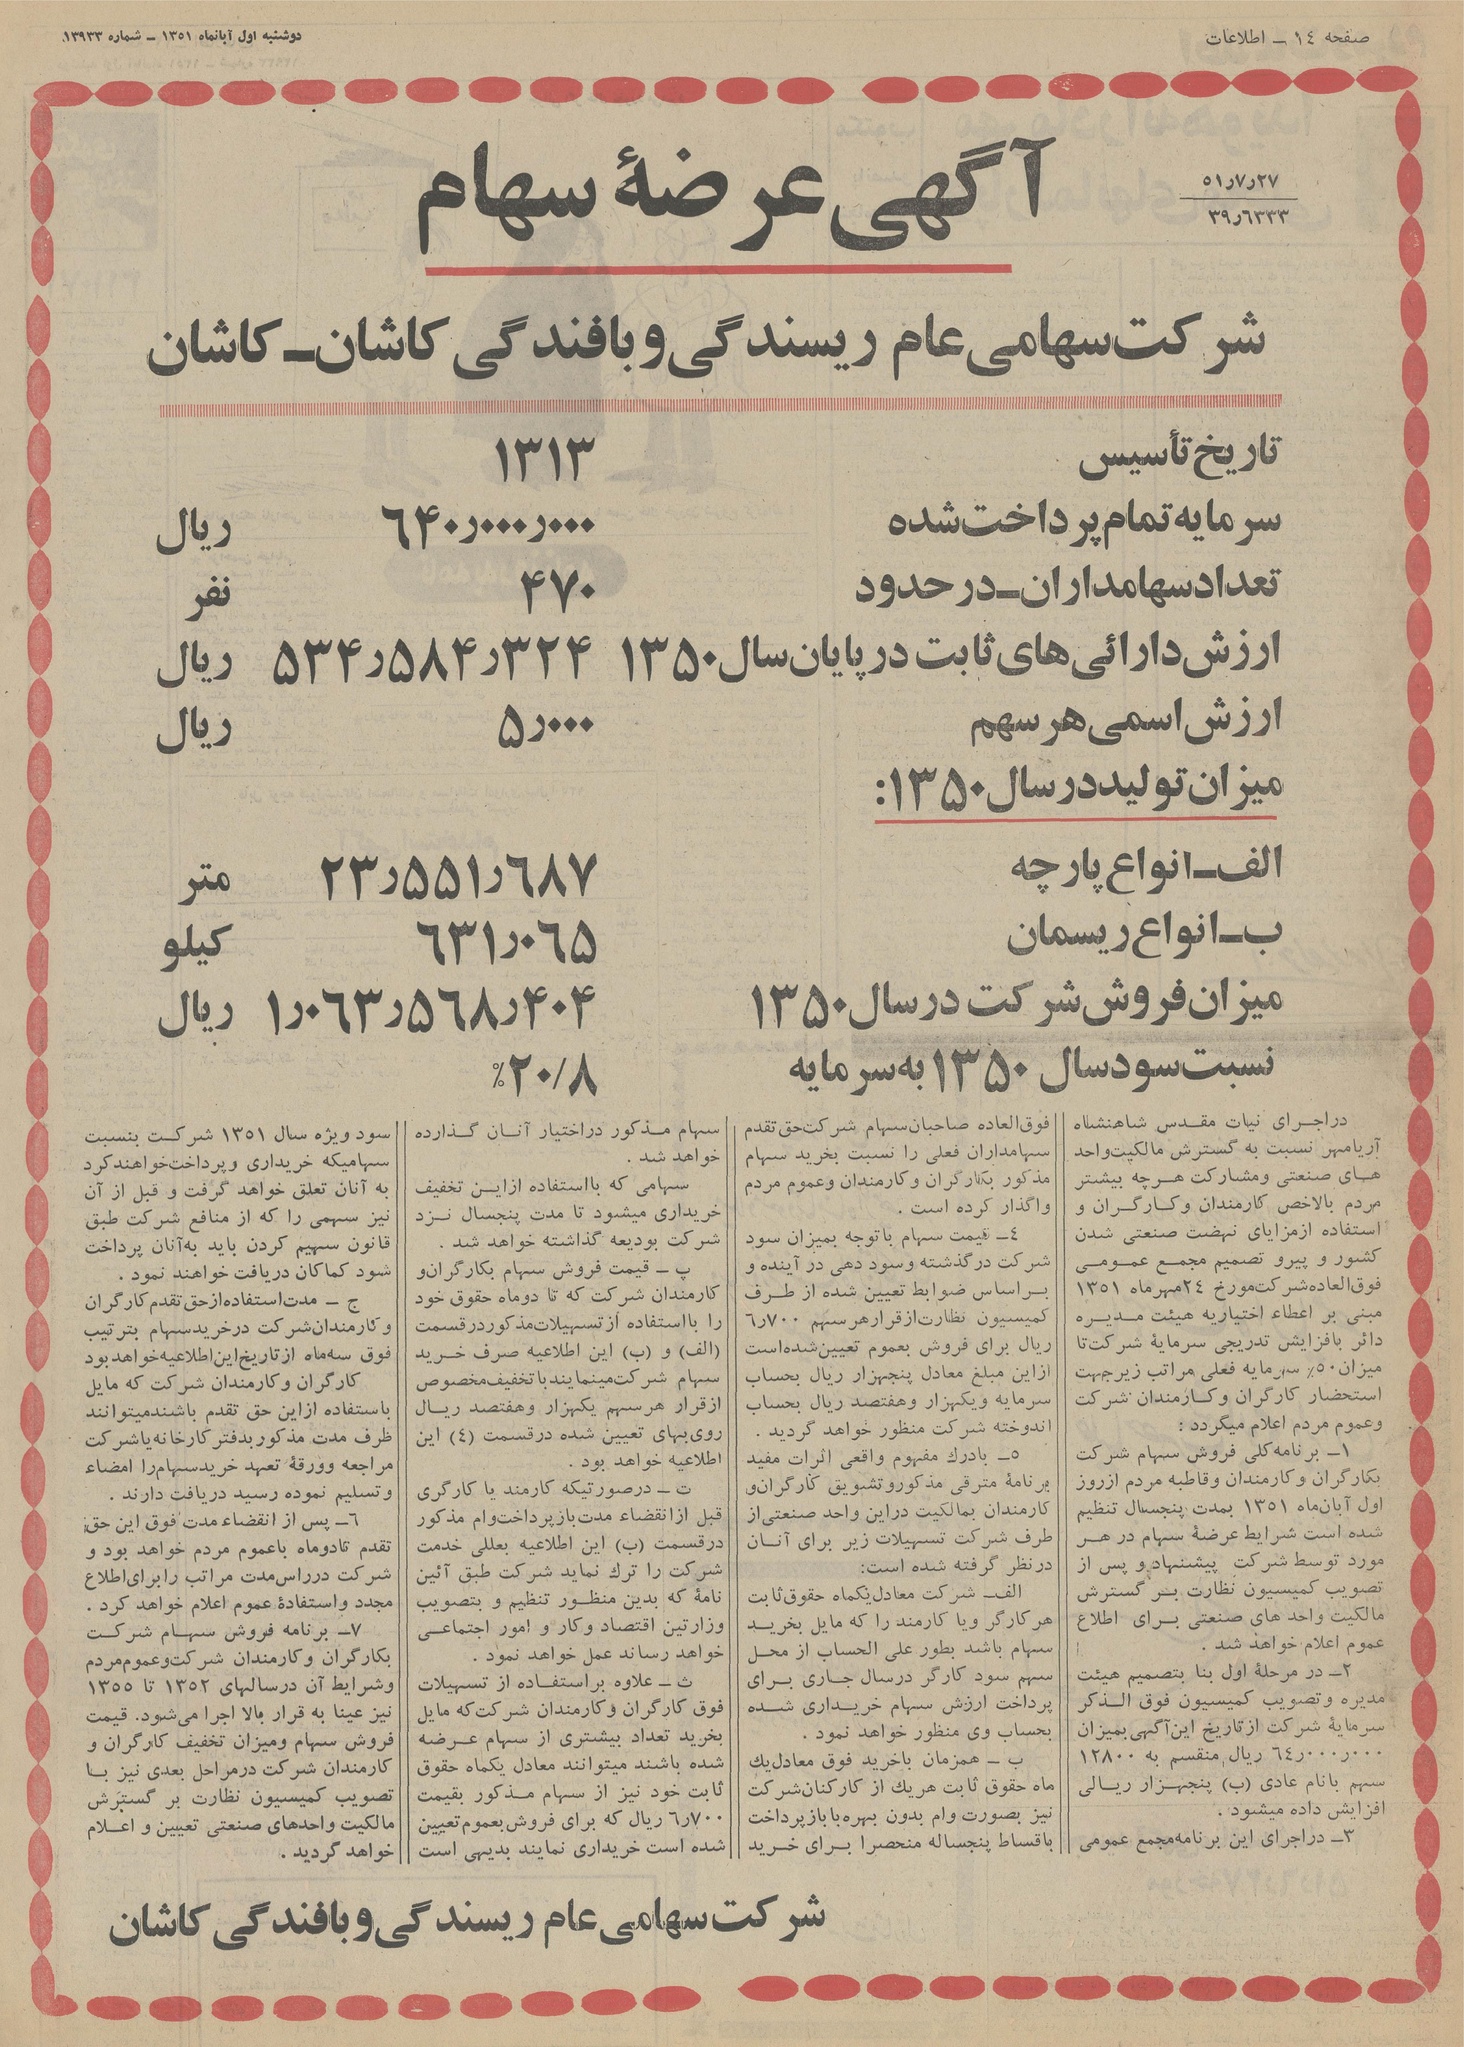 صفحه ۱٤ ـ اطلاعات
دوشنبه اول آبانماه ۱۳۵۱ ـ شماره ۱۳۹۳۳
۵۱ر۷ر۲۷
۳۹ر۶۳۳۳
آگهی عرضهٔ سهام
شرکت سهامی عام ریسندگی و بافندگی کاشان ـ کاشان
تاریخ تأسیس ۱۳۱۳
سرمایه تمام پرداخت شده ۶۴۰ر۰۰۰ر۰۰۰ ریال
تعداد سهامداران ـ در حدود ۴۷۰ نفر
ارزش دارائی‌های ثابت در پایان سال ۱۳۵۰ ۵۳۴ر۵۸۴ر۳۲۴ ریال
ارزش اسمی هر سهم ۵ر۰۰۰ ریال
میزان تولید در سال ۱۳۵۰:
الف ـ انواع پارچه ۲۳ر۵۵۱ر۶۸۷ متر
ب ـ انواع ریسمان ۶۳۱ر۰۶۵ کیلو
میزان فروش شرکت در سال ۱۳۵۰ ۱ر۰۶۳ر۵۶۸ر۴۰۴ ریال
نسبت سود سال ۱۳۵۰ به سرمایه ۲۰/۸٪
در اجرای نیات مقدس شاهنشاه
آریامهر نسبت به گسترش مالکیت واحد
های صنعتی و مشارکت هرچه بیشتر
مردم بالاخص کارمندان و کارگران و
استفاده از مزایای نهضت صنعتی شدن
کشور و پیرو تصمیم مجمع عمومی
فوق العاده شرکت مورخ ۲٤ مهر ماه ۱۳۵۱
مبنی بر اعطاء اختیار به هیئت مدیره
دائر بافزایش تدریجی سرمایهٔ شرکت تا
میزان ۵۰٪ سرمایه فعلی مراتب زیر جهت
استحضار کارگران و کارمندان شرکت
و عموم مردم اعلام میگردد :
۱ـ برنامه کلی فروش سهام شرکت
بکارگران و کارمندان و قاطبه مردم از روز
اول آبان ماه ۱۳۵۱ بمدت پنجسال تنظیم
شده است شرایط عرضهٔ سهام در هر
مورد توسط شرکت پیشنهاد و پس از
تصویب کمیسیون نظارت بر گسترش
مالکیت واحد های صنعتی برای اطلاع
عموم اعلام خواهد شد .
۲ـ در مرحلهٔ اول بنا بتصمیم هیئت
مدیره و تصویب کمیسیون فوق الذکر
سرمایهٔ شرکت از تاریخ این آگهی بمیزان
۶٤ر۰۰۰ر۰۰۰ ریال منقسم به ۱۲۸۰۰
سهم بانام عادی (ب) پنجهزار ریالی
افزایش داده میشود .
۳ـ در اجرای این برنامه مجمع عمومی
فوق العاده صاحبان سهام شرکت حق تقدم
سهامداران فعلی را نسبت بخرید سهام
مذکور بکارگران و کارمندان و عموم مردم
واگذار کرده است .
٤ـ قیمت سهام با توجه بمیزان سود
شرکت در گذشته و سود دهی در آینده و
براساس ضوابط تعیین شده از طرف
کمیسیون نظارت از قرار هر سهم ۶ر۷۰۰
ریال برای فروش بعموم تعیین شده است
از این مبلغ معادل پنجهزار ریال بحساب
سرمایه و یکهزار و هفتصد ریال بحساب
اندوخته شرکت منظور خواهد گردید .
۵ـ بادرك مفهوم واقعی اثرات مفید
برنامهٔ مترقی مذکور و تشویق کارگران و
کارمندان بمالکیت در این واحد صنعتی از
طرف شرکت تسهیلات زیر برای آنان
در نظر گرفته شده است:
الف ـ شرکت معادل یکماه حقوق ثابت
هر کارگر و یا کارمند را که مایل بخرید
سهام باشد بطور علی الحساب از محل
سهم سود کارگر در سال جاری برای
پرداخت ارزش سهام خریداری شده
بحساب وی منظور خواهد نمود .
ب ـ همزمان با خرید فوق معادل یك
ماه حقوق ثابت هریك از کارکنان شرکت
نیز بصورت وام بدون بهره با بازپرداخت
باقساط پنجساله منحصرا برای خرید
سهام مذکور در اختیار آنان گذارده
خواهد شد .
سهامی که با استفاده از این تخفیف
خریداری میشود تا مدت پنجسال نزد
شرکت بودیعه گذاشته خواهد شد .
پ ـ قیمت فروش سهام بکارگران و
کارمندان شرکت که تا دو ماه حقوق خود
را با استفاده از تسهیلات مذکور در قسمت
(الف) و (ب) این اطلاعیه صرف خرید
سهام شرکت مینمایند با تخفیف مخصوص
از قرار هر سهم یکهزار و هفتصد ریال
روی بهای تعیین شده در قسمت (٤) این
اطلاعیه خواهد بود .
ت ـ در صورتیکه کارمند یا کارگری
قبل از انقضاء مدت بازپرداخت وام مذکور
در قسمت (ب) این اطلاعیه بعللی خدمت
شرکت را ترك نماید شرکت طبق آئین
نامهٔ که بدین منظور تنظیم و بتصویب
وزارتین اقتصاد و کار و امور اجتماعی
خواهد رساند عمل خواهد نمود .
ث ـ علاوه بر استفاده از تسهیلات
فوق کارگران و کارمندان شرکت که مایل
بخرید تعداد بیشتری از سهام عرضه
شده باشند میتوانند معادل یکماه حقوق
ثابت خود نیز از سهام مذکور بقیمت
۶ر۷۰۰ ریال که برای فروش بعموم تعیین
شده است خریداری نمایند بدیهی است
سود ویژه سال ۱۳۵۱ شرکت بنسبت
سهامیکه خریداری و پرداخت خواهند کرد
به آنان تعلق خواهد گرفت و قبل از آن
نیز سهمی را که از منافع شرکت طبق
قانون سهیم کردن باید به آنان پرداخت
شود کماکان دریافت خواهند نمود .
ج ـ مدت استفاده از حق تقدم کارگران
و کارمندان شرکت در خرید سهام بترتیب
فوق سه ماه از تاریخ این اطلاعیه خواهد بود
کارگران و کارمندان شرکت که مایل
باستفاده از این حق تقدم باشند میتوانند
ظرف مدت مذکور بدفتر کارخانه یا شرکت
مراجعه و ورقهٔ تعهد خرید سهام را امضاء
و تسلیم نموده رسید دریافت دارند .
۶ـ پس از انقضاء مدت فوق این حق
تقدم تا دو ماه با عموم مردم خواهد بود و
شرکت در راس مدت مراتب را برای اطلاع
مجدد و استفادهٔ عموم اعلام خواهد کرد .
۷ـ برنامه فروش سهام شرکت
بکارگران و کارمندان شرکت و عموم مردم
و شرایط آن در سالهای ۱۳۵۲ تا ۱۳۵۵
نیز عینا به قرار بالا اجرا می‌شود. قیمت
فروش سهام و میزان تخفیف کارگران و
کارمندان شرکت در مراحل بعدی نیز با
تصویب کمیسیون نظارت بر گسترش
مالکیت واحدهای صنعتی تعیین و اعلام
خواهد گردید .
شرکت سهامی عام ریسندگی و بافندگی کاشان